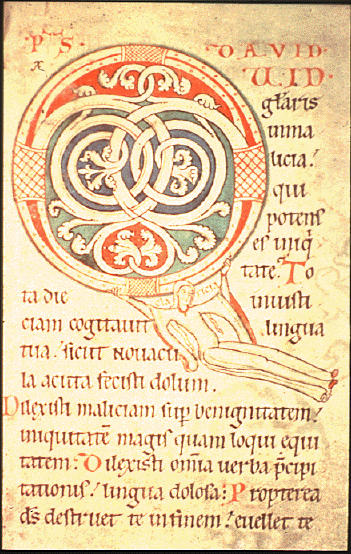 PS. DAVID.
Q UID
gl̄aris
inma
licia?
qui
potens
es iniq̄
tate? To
ta die iniusti
ciam cogitavit lingua
tua? sicut novacu
la acuta fecisti dolum.
Dilexisti maliciam sup̄ benignitatem?
iniquitatē magis quam loqui equi
tatem: Dilexisti om̄ia verba p̄cipi
tationis? lingua dolosa: Propterea
d̄s destruet te in finem? evellet te